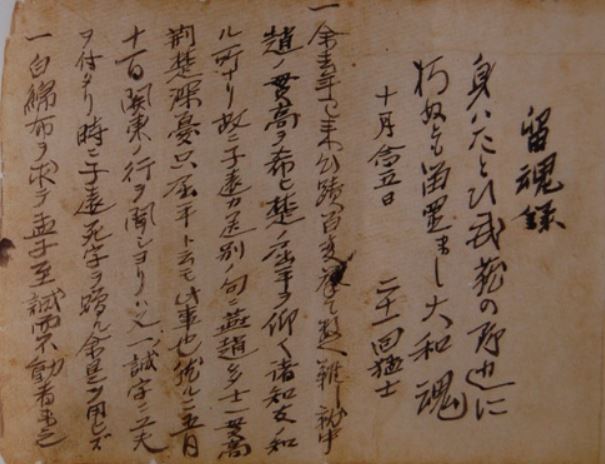 留魂録
身ハたとひ武蔵の野辺に
朽ぬとも留置まし大和魂
十月念五日　二十一回猛士
一 余去年已来心蹟百変挙て数へ難し就中
趙ノ貫高ヲ希ヒ楚ノ屈平ヲ仰ク諸知友ノ知
ル所ナリ故ニ子遠カ送別ノ句ニ燕趙多士一貫高
荊楚深憂只屈平ト云モ此事也然ルニ五月
十一日関東ノ行ヲ聞シヨリハ又一ノ誠字ニ工夫
ヲ付タリ時ニ子遠死字ヲ贈ル余是ヲ用ヒズ
一白綿布ヲ求テ孟子至誠而不動者未之